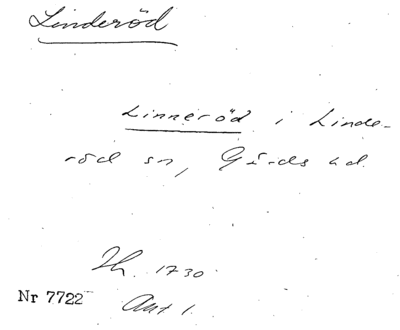 Linderöd
Linneröd i Linde-
röd sn, Gärds hd.
Jb. 1730
Nr 7722 Ant 1.